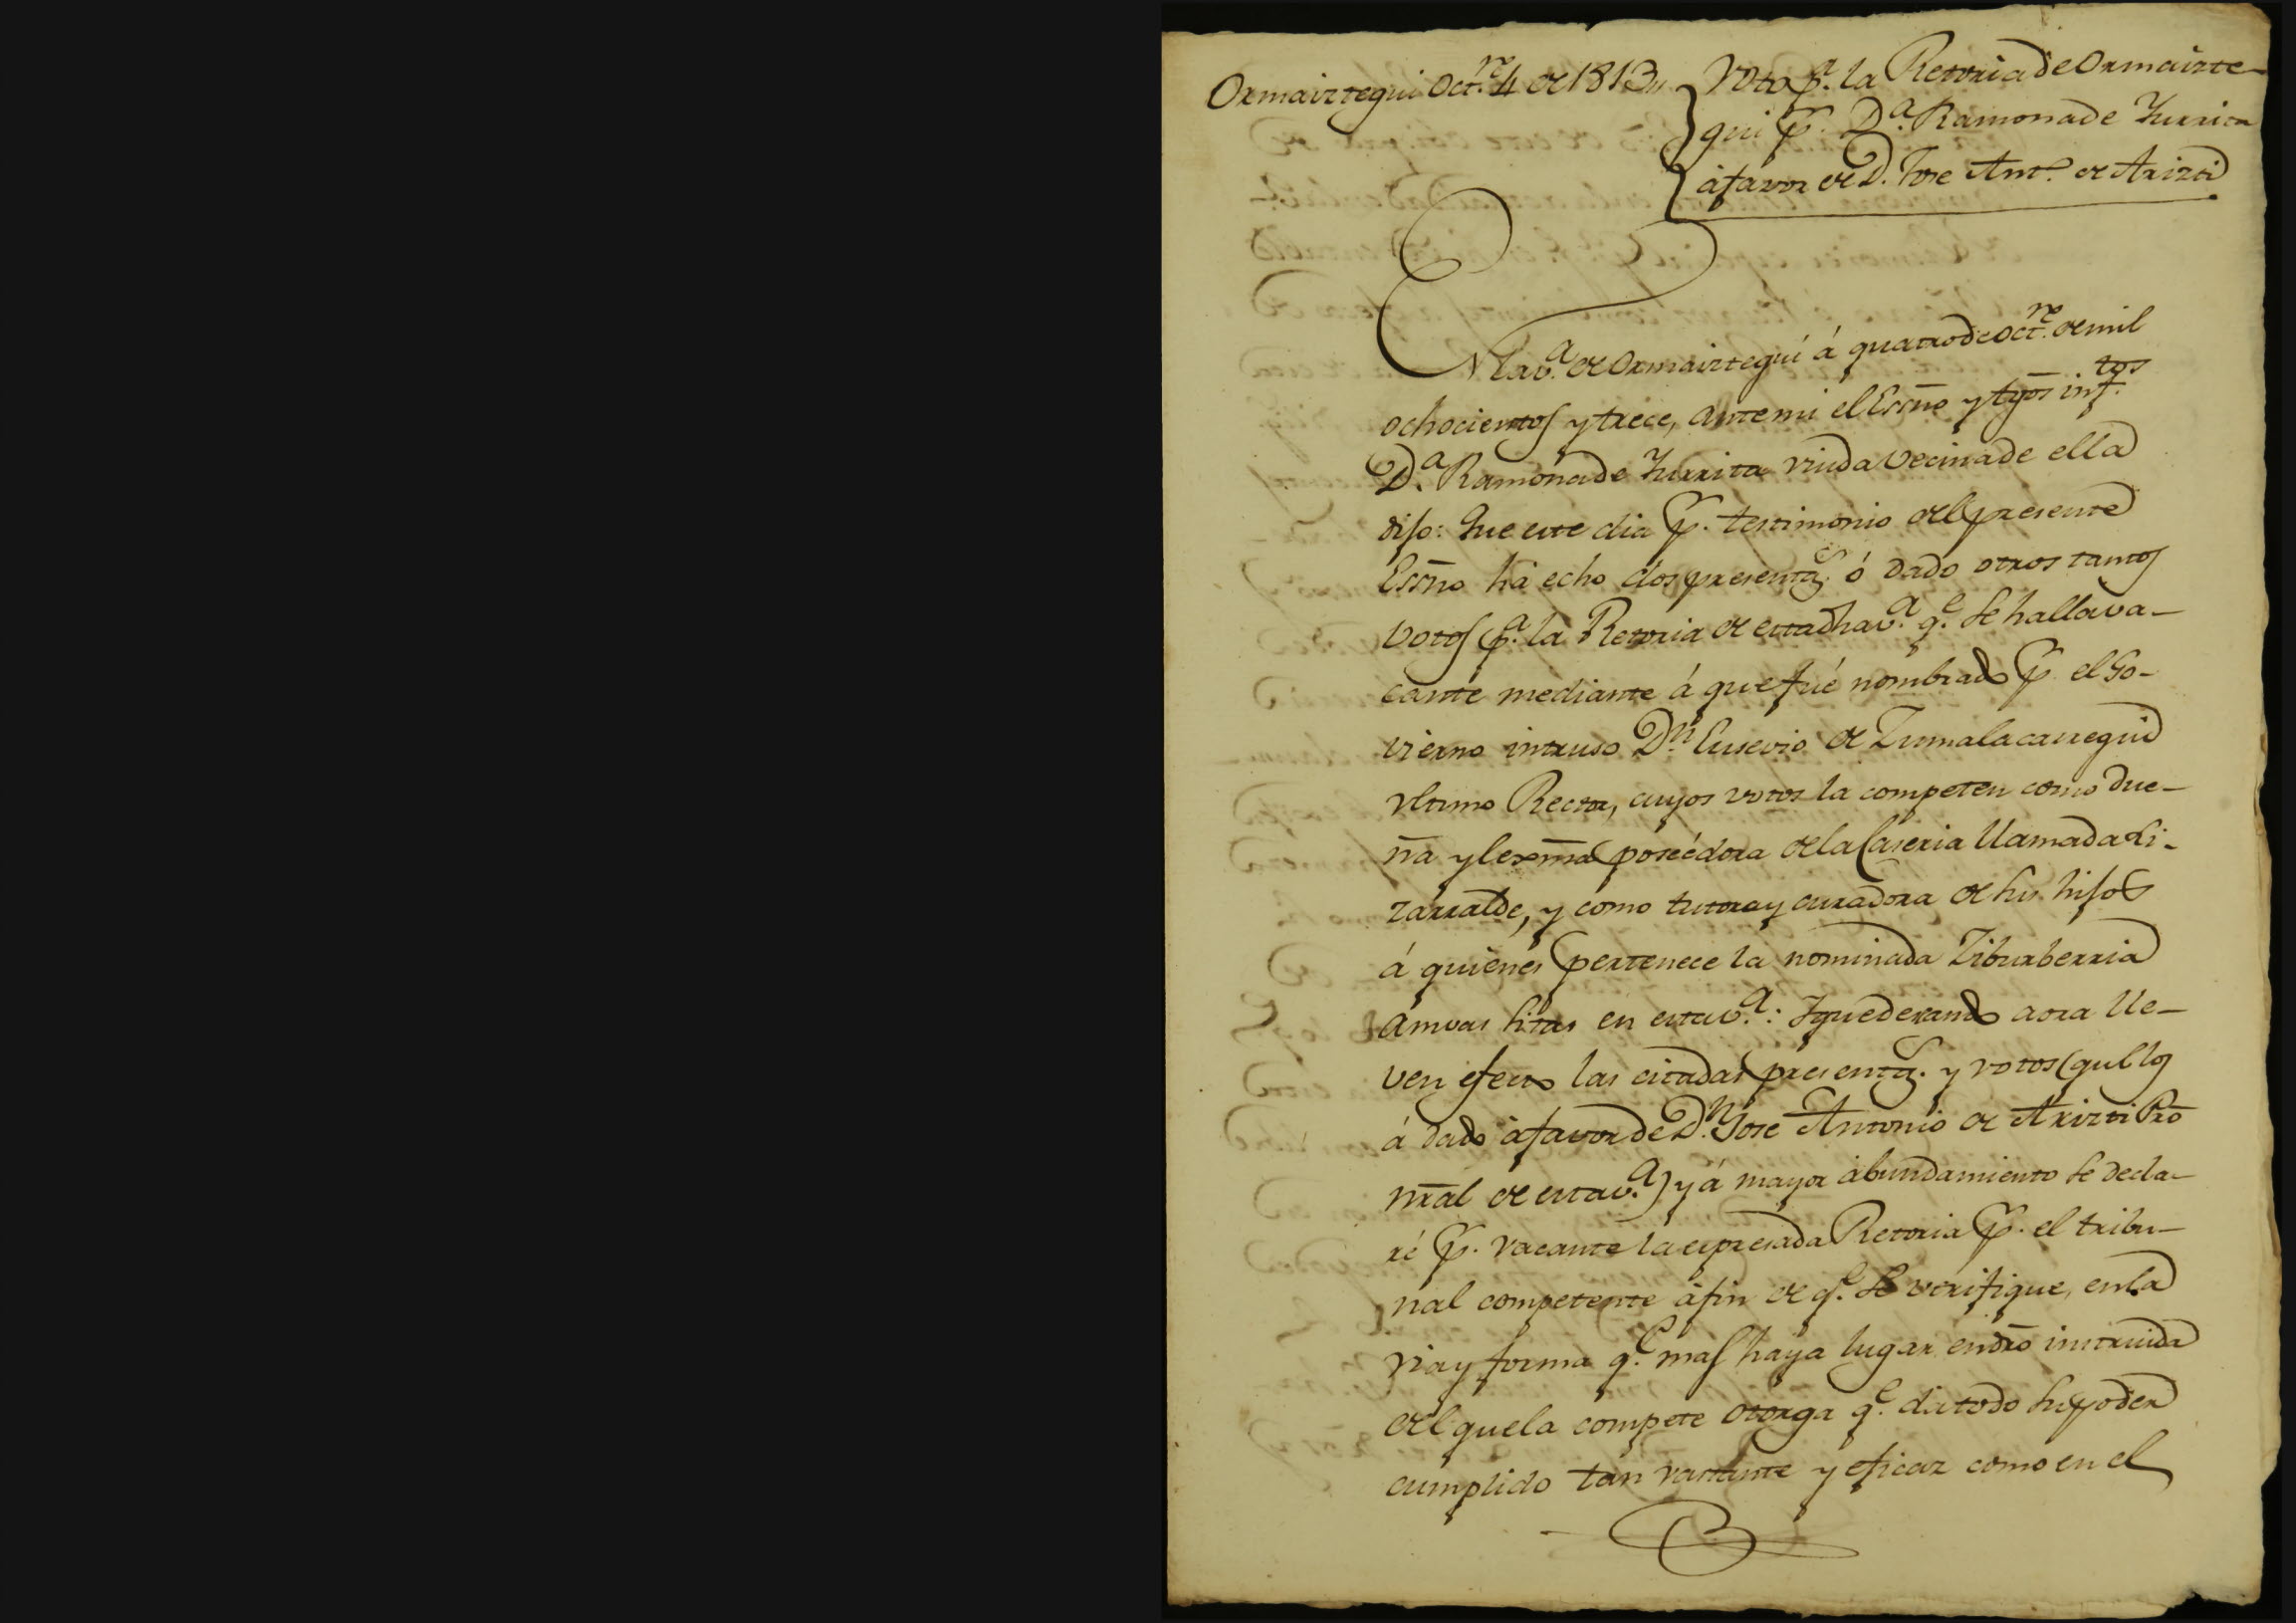 Ormaiztegui Oct.re 4 de 1813,,
Voto p.a la Retoria de Ormaizte-
gui p.r D.a Ramona de Yurrita
à favor de D. Jose Ant.o de Arizti
EN la v.a de Ormaiztegui á quatro de Oct.re de mil
ochocientos y trece, ante mi el Essno y tgos inf.tos
D.a Ramona de Yurrita viuda vecina de ella
dijo: Que este dia p.r testimonio del presente
Essno há echo dos presentas. ó dado otros tantos
votos p.a la Retoria de esta dha v.a q.e se hallava-
cante mediante á que fué nombrado p.r el Go-
vierno intruso D.n Eusevio de Zumalacarregui
ultimo Rector, cuyos votos la competen como due-
ña y lexma poseédora de la Caseria llamada Li-
zarralde, y como tutora y curadora de sus hijos
á quienes pertenece la nominada Ziburberria
amvas sitas en esta v.a: Y quederando aora lle-
ven efecto las citadas presentas. y votos (qul los
á dado à favor de D.n Jose Antonio de Arizti Pro
nral de esta v.a) y á mayor abundamiento se decla-
ré p.r vacante la expresada Retoria p.r el tribu-
nal competente àfin de q.e se verifique, en la
via y forma q.e mas haya lugar en dro instruida
del que la compete otorga q.e da todo su poder
cumplido tan vastante y eficaz como en el